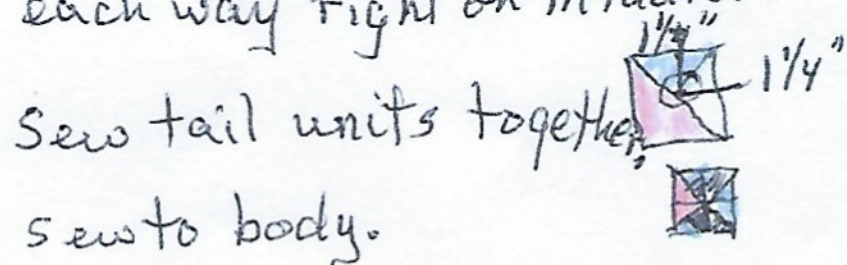 each way right on middle.
1 1/4"
1 1/4"
Sew tail units together,
sew to body.